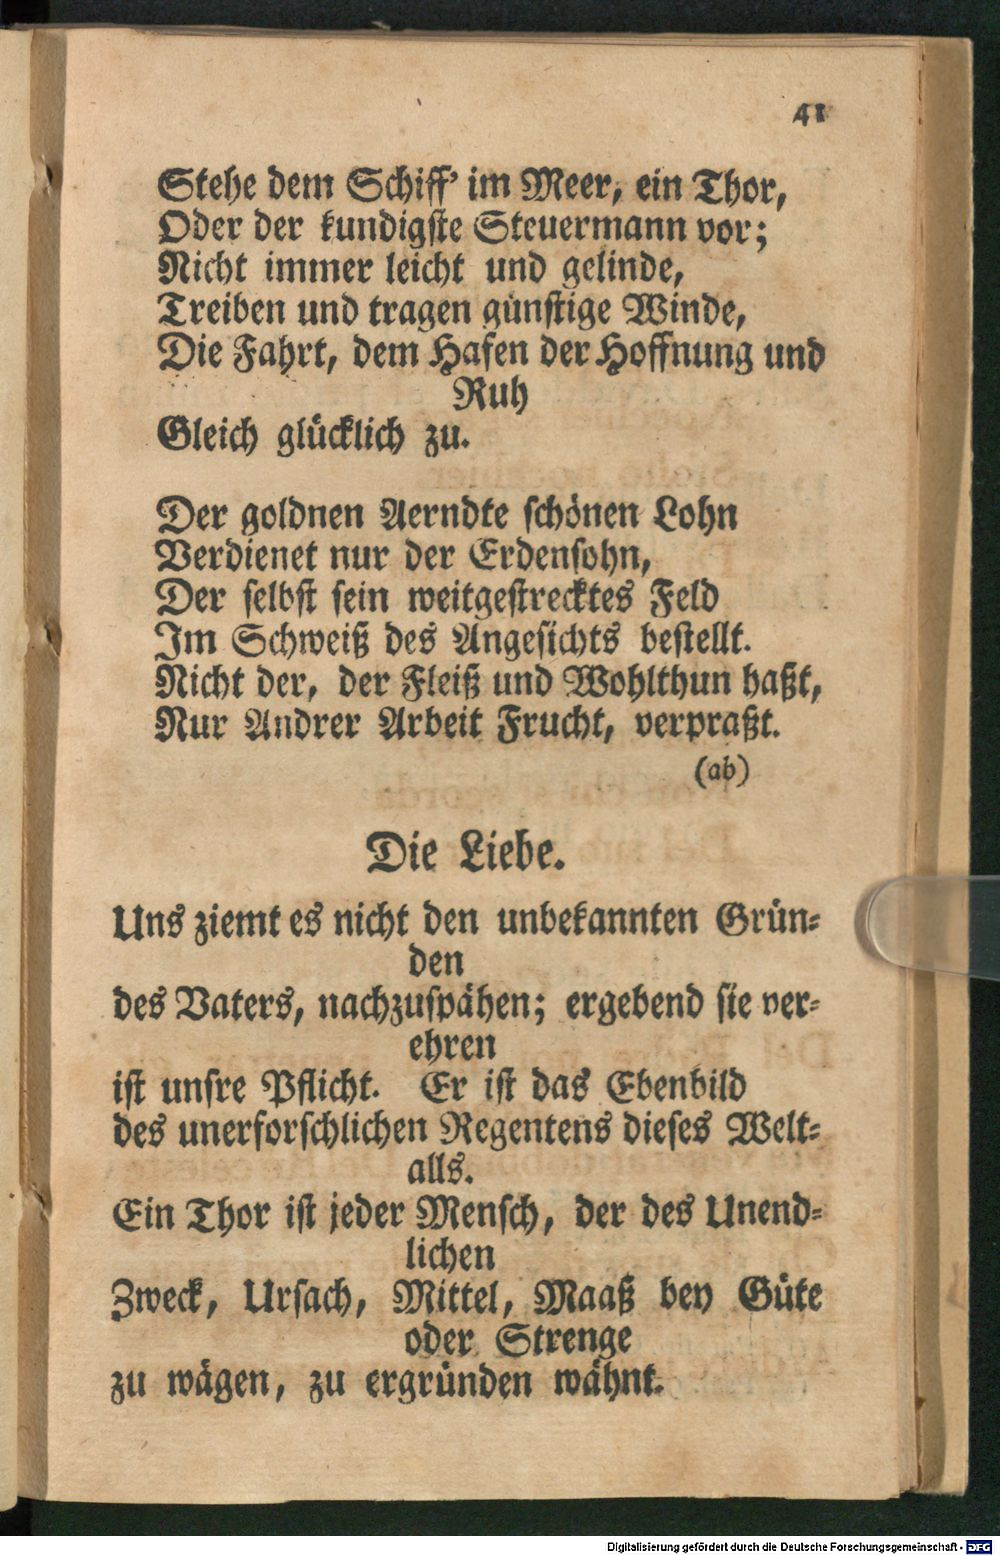 41
Stehe dem Schiff' im Meer, ein Thor,
Oder der kundigste Steuermann vor;
Nicht immer leicht und gelinde,
Treiben und tragen günstige Winde,
Die Fahrt, dem Hafen der Hoffnung und
Ruh
Gleich glücklich zu.
Der goldnen Aerndte schönen Lohn
Verdienet nur der Erdensohn,
Der selbst sein weitgestrecktes Feld
Im Schweiß des Angesichts bestellt.
Nicht der, der Fleiß und Wohlthun haßt,
Nur Andrer Arbeit Frucht, verpraßt.
(ab)
Die Liebe.
Uns ziemt es nicht den unbekannten Grün-
den
des Vaters, nachzuspähen; ergebend sie ver-
ehren
ist unsre Pflicht. Er ist das Ebenbild
des unerforschlichen Regentens dieses Welt-
alls.
Ein Thor ist jeder Mensch, der des Unend-
lichen
Zweck, Ursach, Mittel, Maaß bey Güte
oder Strenge
zu wägen, zu ergründen wähnt.
Digitalisierung gefördert durch die Deutsche Forschungsgemeinschaft - DFG